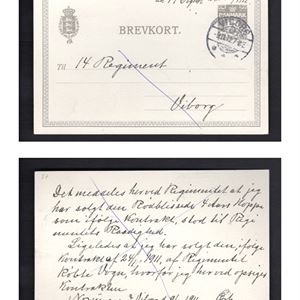 DANMARK
BREVKORT.
Til 14 Regiment
Viborg
Det meddeles herved Regimentet at jeg
har solgt den Rødblissede
som ifølge Kontrakt, stod til Regi
mentets Raadighed.
Ligeledes at jeg har solgt den, ifølge
Kontrakt af 24/ 1911, af Regimentet
købte Vogn, hvorfor jeg herved opsiger
Kontrakten
1911